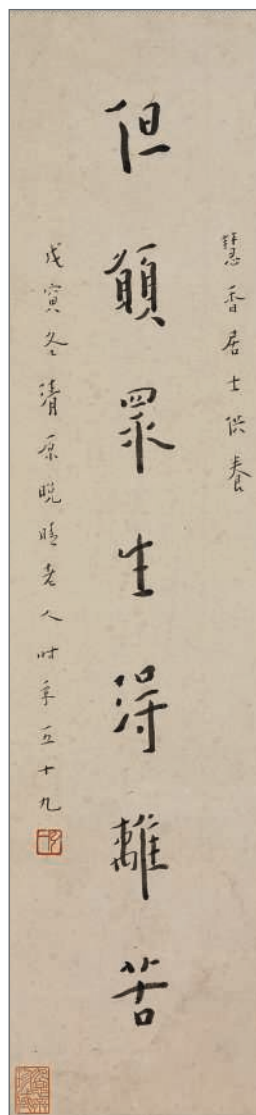 慧香居士供養
但願眾生得離苦
戊寅冬清原晚晴老人时年五十九